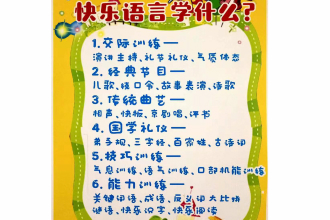 快乐语言学什么?
1.交际训练—
演讲主持、礼节礼仪、气质体态
2.经典节目—
儿歌、绕口令、故事表演、诗歌
3.传统曲艺—
相声、快板、京剧唱、评书
4.国学礼仪—
弟子规、三字经、百家姓、古诗词
5.技巧训练—
气息训练、语气训练、口部机能训练
6.能力训练—
关键词语、成语、反义词大比拼
谜语、快乐识字、快乐阅读